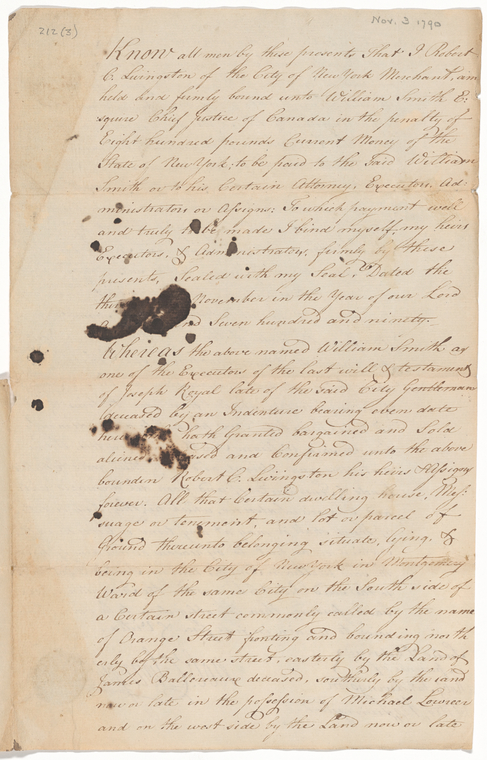 212 (3)
Nov. 3 1790
Know all men by these presents That I Robert
C. Livingston of the City of New York Merchant, am
held and firmly bound unto William Smith E:
squire Chief Justice of Canada in the penalty of
Eight hundred pounds Current Money of the
State of New York, to be paid to the said William
Smith or to his Certain Attorney, Executors, Ad
ministrators or Assigns: To which payment well
and truly to be made I bind myself my heirs
Executors, & Administrators, firmly by these
presents, Sealed with my Seal. Dated the
November in the Year of our Lord
nd Seven hundred and ninety.
Whereas the above named William Smith as
one of the Executors of the last will & testament
of Joseph Royal late of the said City Gentleman
deceased by an Indenture bearing even date
hath Granted bargained and Sold
aliened and Confirmed unto the above
bounden Robert C. Livingston his heirs & Assigns
forever. All that Certain dwelling house, Mes:
suage or tenement, and lot or parcel of
Ground thereunto belonging situate, lying, &
being in the City of New York in Montgomery
Ward of the same City on the South side of
a Certain street commonly called by the name
of Orange Street fronting and bounding north
erly by the same street, easterly by the Land of
James deceased, southerly by the land
now or late in the possession of Michael
and on the west side by the Land now or late